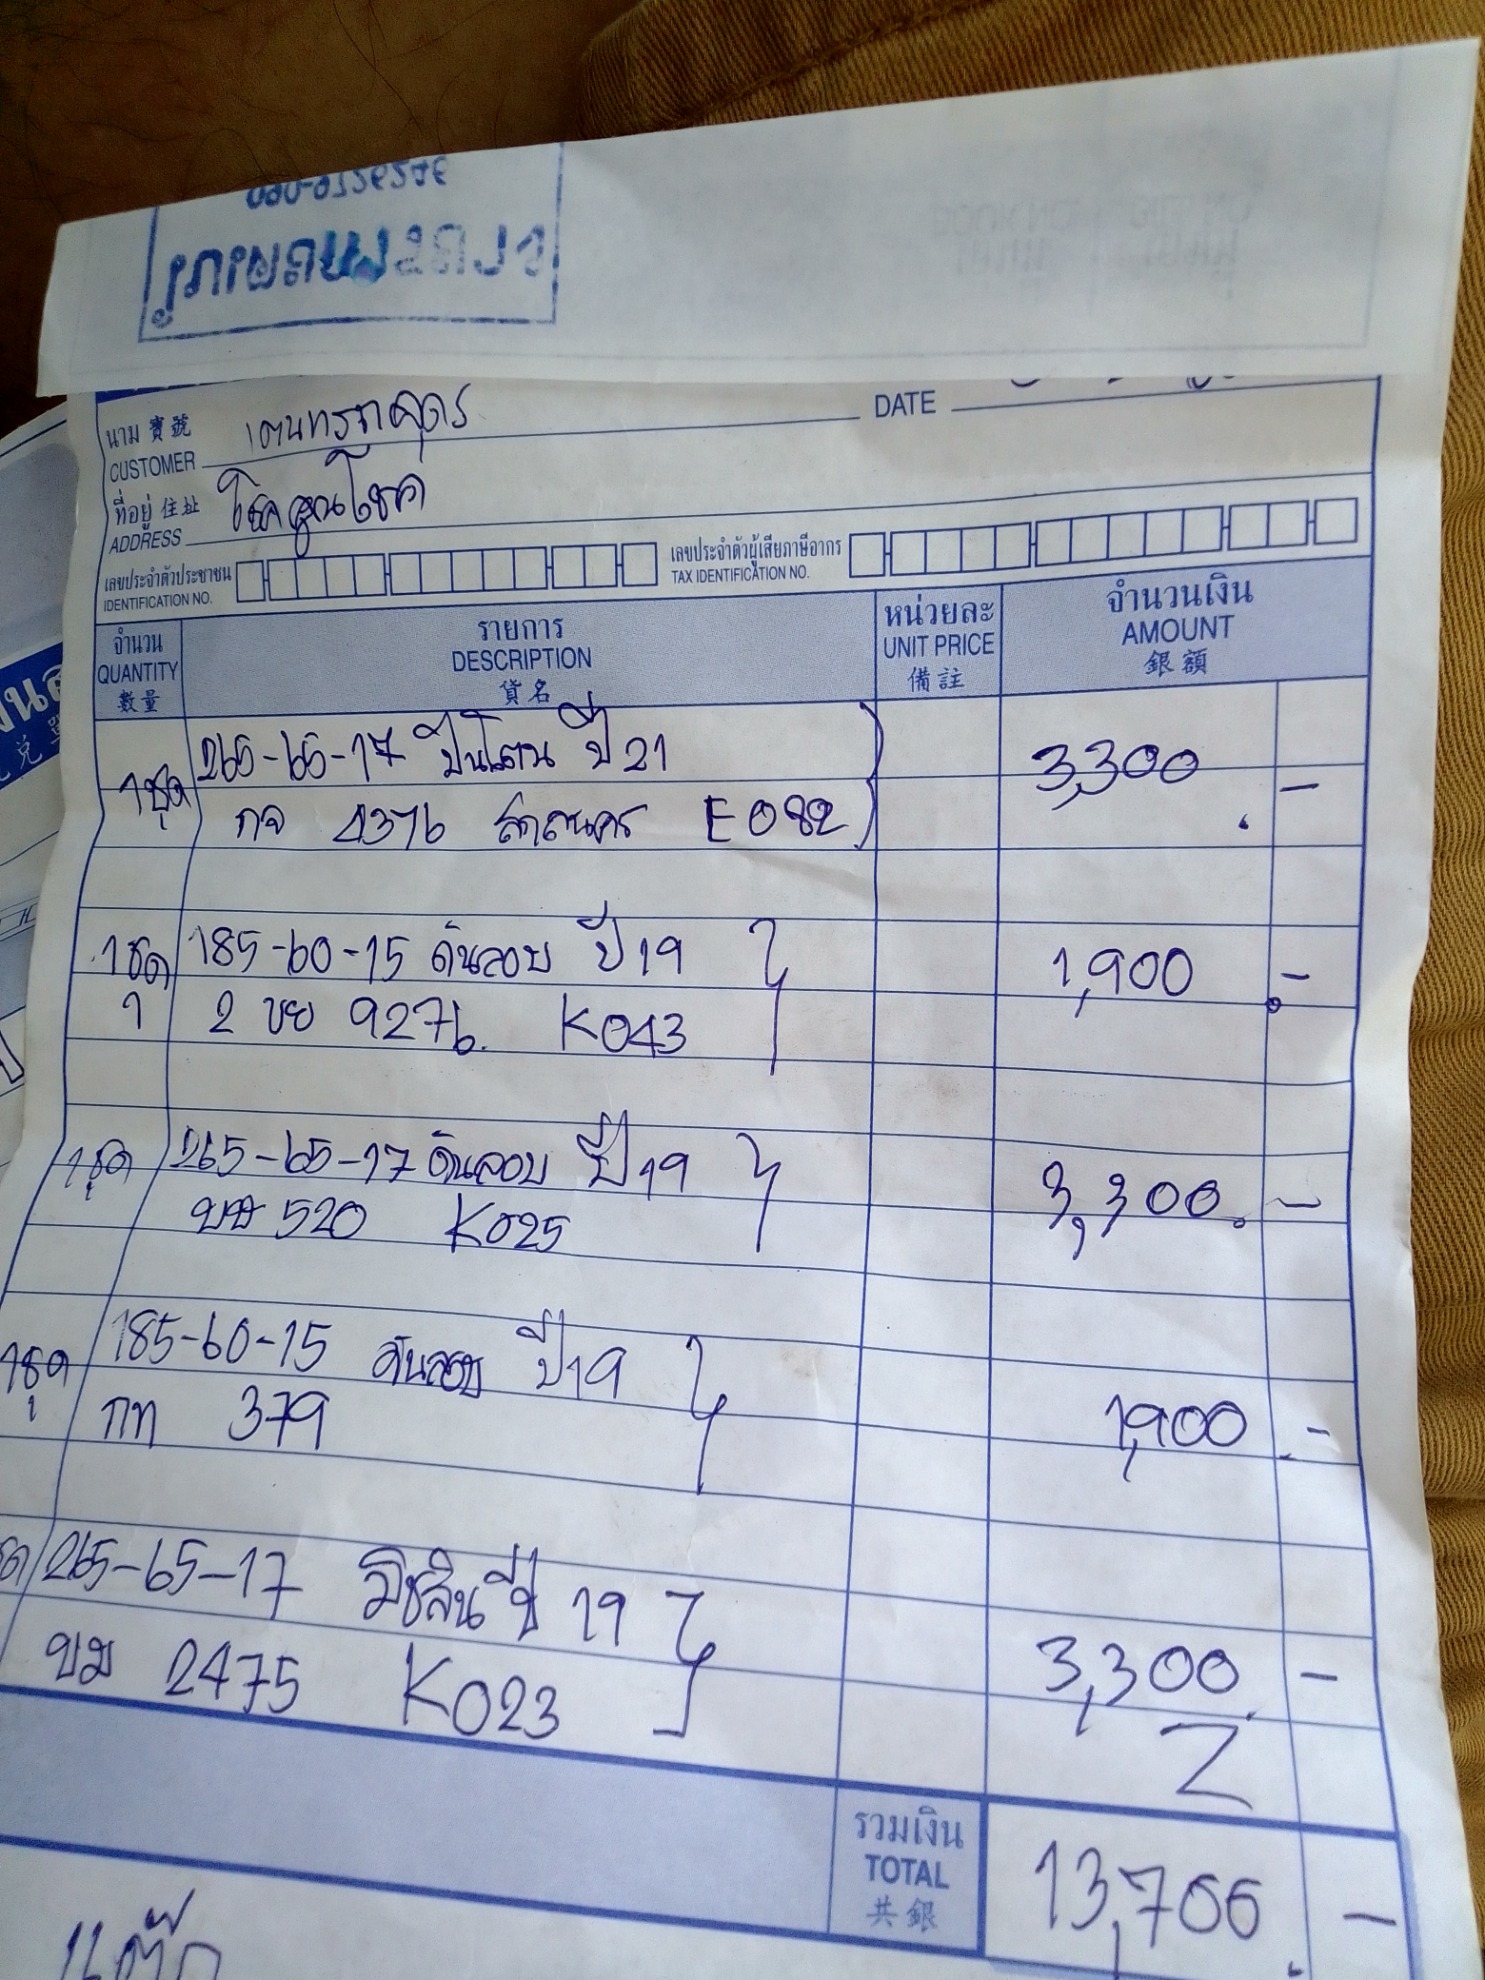 090-9726246
นาม 寶號
CUSTOMER
DATE
ที่อยู่ 住址 โชคคูณโชค
ADDRESS
เลขประจำตัวประชาชน
IDENTIFICATION NO.
เลขประจำตัวผู้เสียภาษีอากร
TAX IDENTIFICATION NO.
จำนวน รายการ หน่วยละ จำนวนเงิน
QUANTITY DESCRIPTION UNIT PRICE AMOUNT
數量 貨名 備註 銀額
1ชุด 265-65-17 ปี 21 3,300 -
กจ 4376 สกลนคร E082
1ชุด 185-60-15 ดันลอบ ปี 19 1,900 -
2 ขย 9276. K043
1ชุด 265-65-17 ดันลอบ ปี 19 3,300. -
520 K025
1ชุด 185-60-15 ดันลอบ ปี 19 1,900 -
กท 379
265-65-17 มิชลิน ปี 19 3,300 -
ขม 2475 K023
รวมเงิน
TOTAL 13,700 -
共銀